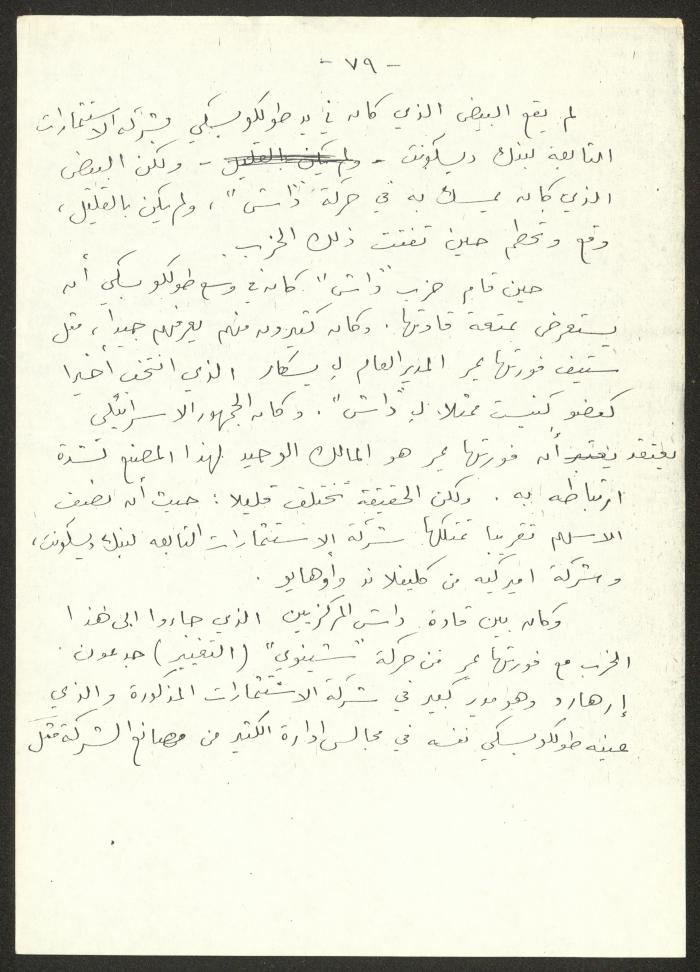 - ٧٩ -
لم يقع البيض الذي كان في يد طولكوبسكي وشركة الاستثمارات
التابعة لبنك ديسكونت - ولم يكن بالقليل - ولكن البيض
الذي كان يمسك به في حركة "داش"، ولم يكن بالقليل،
وقع وتحطم حين تفتت ذلك الحزب.
حين قام حزب "داش" كان في وسع طولكوبسكي أن
يستعرض بمتعة قادتها. وكان كثيرون منهم يعرفهم جيدا، مثل
ستيف فورتهايمر المدير العام لـ يسكار الذي انتخب أخيرا
كعضو كنيست ممثلا لـ "داش". وكان الجمهور الاسرائيلي
يعتقد يعتبر أن فورتهايمر هو المالك الوحيد لهذا المصنع لشدة
ارتباطه به. ولكن الحقيقة تختلف قليلا: حيث أن نصف
الاسهم تقريبا تمتلكها شركة الاستثمارات التابعة لبنك ديسكونت،
وشركة اميركية من كليفلاند وأوهايو.
وكان بين قادة داش المركزيين الذي جاءوا الى هذا
الحزب مع فورتهايمر من حركة "شينوي" (التغيير) جدعون
إرهارد وهو مدير كبير في شركة الاستثمارات المذكورة والذي
عينه طولكوبسكي نفسه في مجالس ادارة الكثير من مصانع الشركة مثل